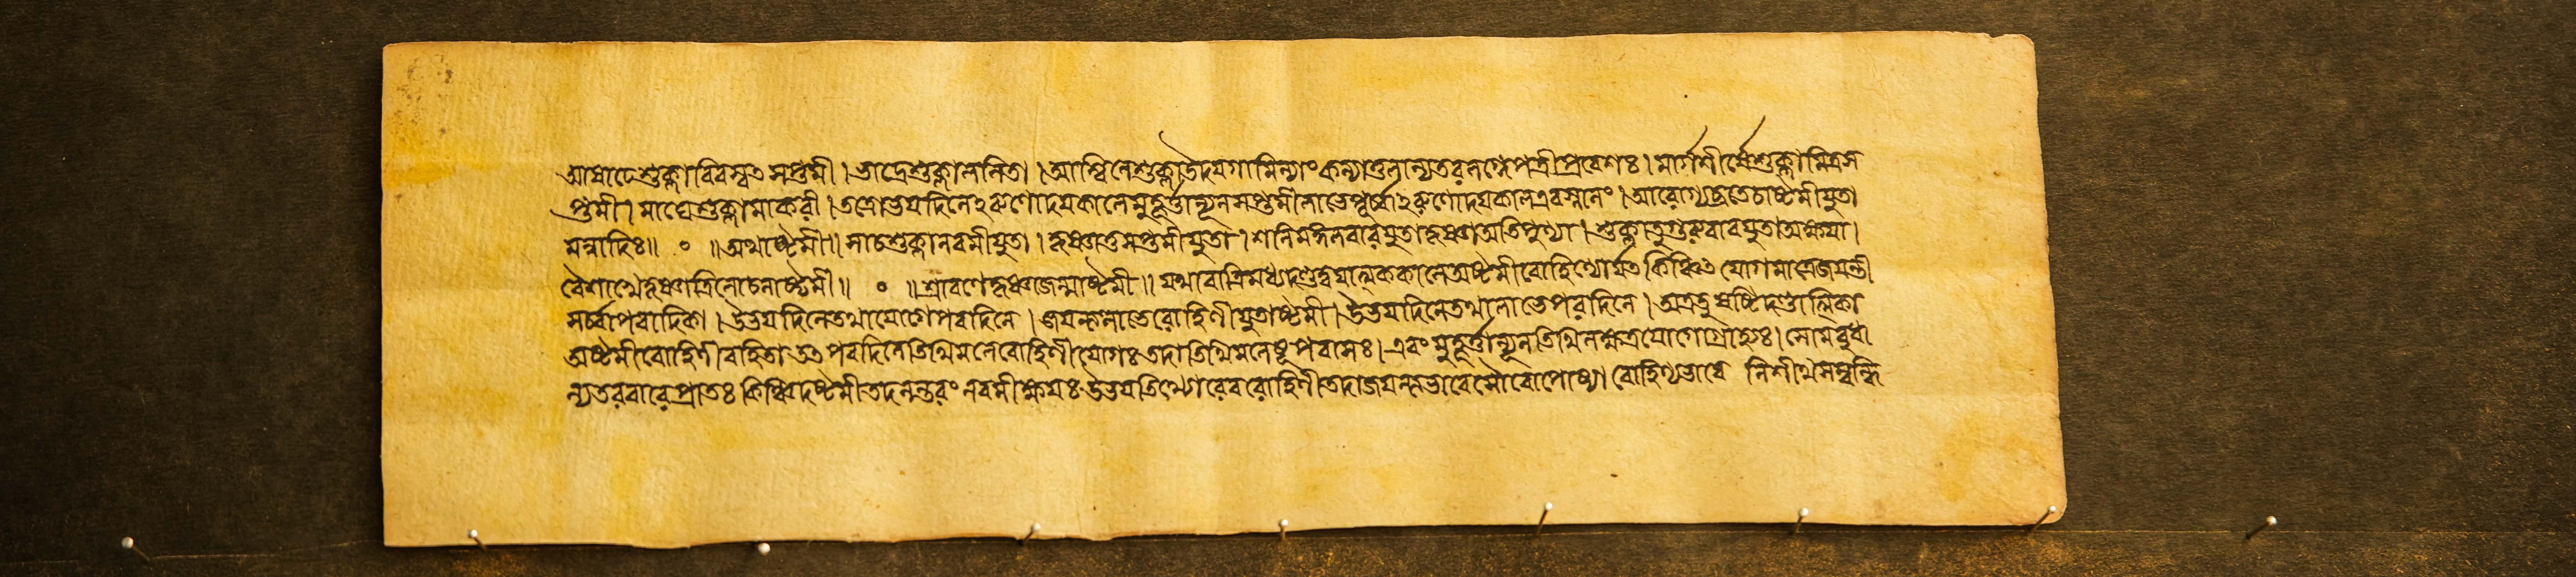 আষাঢেশুক্লাবিবস্বত্সপ্তমী । ভাদ্রেশুক্লাললিতা । আশ্বিনেশুক্লাউদয়গামিন্যাংকন্যাতুলান্যতরলগ্নেপত্রীপ্রবেশঃ । মার্গশীর্ষেশুক্লামিত্রস
প্তমী । মাঘেশুক্লামাকরী । তত্রোভয়দিনেঽরুণোদয়কালেমুহূর্ত্তান্যূনসপ্তমীলাভেপূর্ব্বাঽরুণোদয়কালএবস্নানং । আরোগ্যব্রতেচাষ্টমীযুতা
মন্বাদিঃ॥ ॰ ॥অথাষ্টমী॥ সাচশুক্লানবমীযুতা । কৃষ্ণাতুসপ্তমীযুতা । শনিমঙ্গলবারযুতাকৃষ্ণাঅতিপুণ্যা । শুক্লাতুগুরুবারযুতাঅক্ষয়া ।
বৈশাখেকৃষ্ণাত্রিলোচনাষ্টমী॥ ॰ ॥শ্রাবণেকৃষ্ণাজন্মাষ্টমী॥ যথারাত্রিমধ্যদণ্ডদ্বয়াত্মককালেঅষ্টমীরোহিণ্যোর্যত্রকিঞ্চিত্ যোগমাত্রেজয়ন্তী
সর্ব্বাপবাদিকা । উভয়দিনেতথাযোগেপরদিনে । জয়ন্ত্যলাভেরোহিণীযুতাষ্টমী । উভয়দিনেতথালাভেপরদিনে । অত্রতুষষ্টিদণ্ডাত্মিকা
অষ্টমীরোহিণীরহিতা তত্র পরদিনেতিথিমলেরোহিণীযোগঃ তদাতিথিমলেপ্যুপবাসঃ । এবং মুহূর্ত্তান্যূনতিথিনক্ষত্রযোগোগ্রাহ্যঃ । সোমবুধা
ন্যতরবারেপ্রাতঃ কিঞ্চিদষ্টমীতদনন্তরং নবমীক্ষয়ঃ উভয়তিথ্যোরেবরোহিণীতদাজয়ন্ত্যভাবেসৈবোপোষ্যা রোহিণ্যভাবে নিশীথসম্বন্ধি